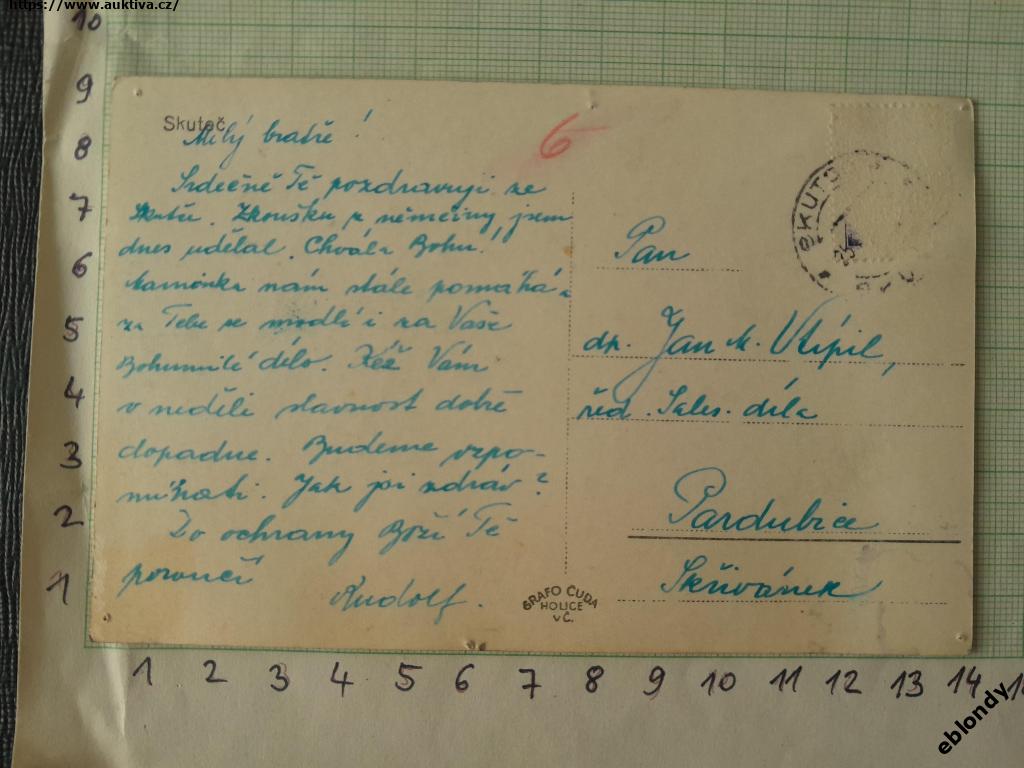 https://www.auktiva.cz/
10
9
8
7
6
5
4
3
2
1
Skuteč
Milý bratře!
Srdečně Tě pozdravuji ze
Skutče. Zkoušku z němčiny jsem
dnes udělal. Chvála Bohu!
Maminka nám stále pomáhá a
za Tebe se modlí i za Vaše
Bohumilé dílo. Kéž Vám
v neděli slavnost dobře
dopadne. Budeme vzpo-
mínati. Jak jsi zdráv?
Do ochrany Boží Tě
poroučí
Rudolf.
6
SKUTE
Pan
dp. Jan M. Vtípil,
řed. Sales. díla
Pardubice
Skřivánek
GRAFO ČUDA
HOLICE
v Č.
1 2 3 4 5 6 7 8 9 10 11 12 13 14
eblondy